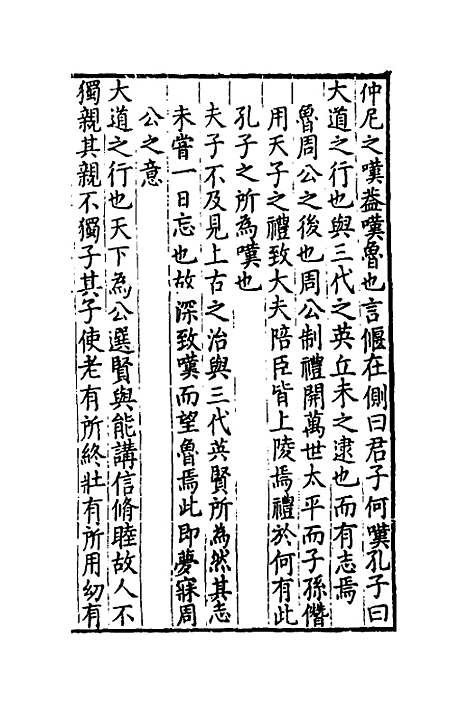 仲尼之嘆蓋嘆魯也言偃在側曰君子何嘆孔子曰
大道之行也與三代之英丘未之逮也而有志焉
魯周公之後也周公制禮開萬世太平而子孫僭
用天子之禮致大夫陪臣皆上陵焉禮於何有此
孔子之所為嘆也
夫子不及見上古之治與三代英賢所為然其志
未嘗一日忘也故深致嘆而望魯焉此即夢寐周
公之意
大道之行也天下為公選賢與能講信脩睦故人不
獨親其親不獨子其子使老有所終壯有所用幼有